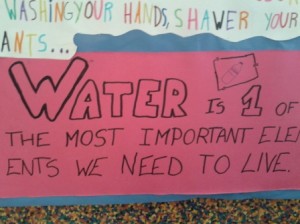 WASHING YOUR HANDS, SHAWER YOUR
ANTS...
WATER IS 1 OF
THE MOST IMPORTANT ELEM
ENTS WE NEED TO LIVE.